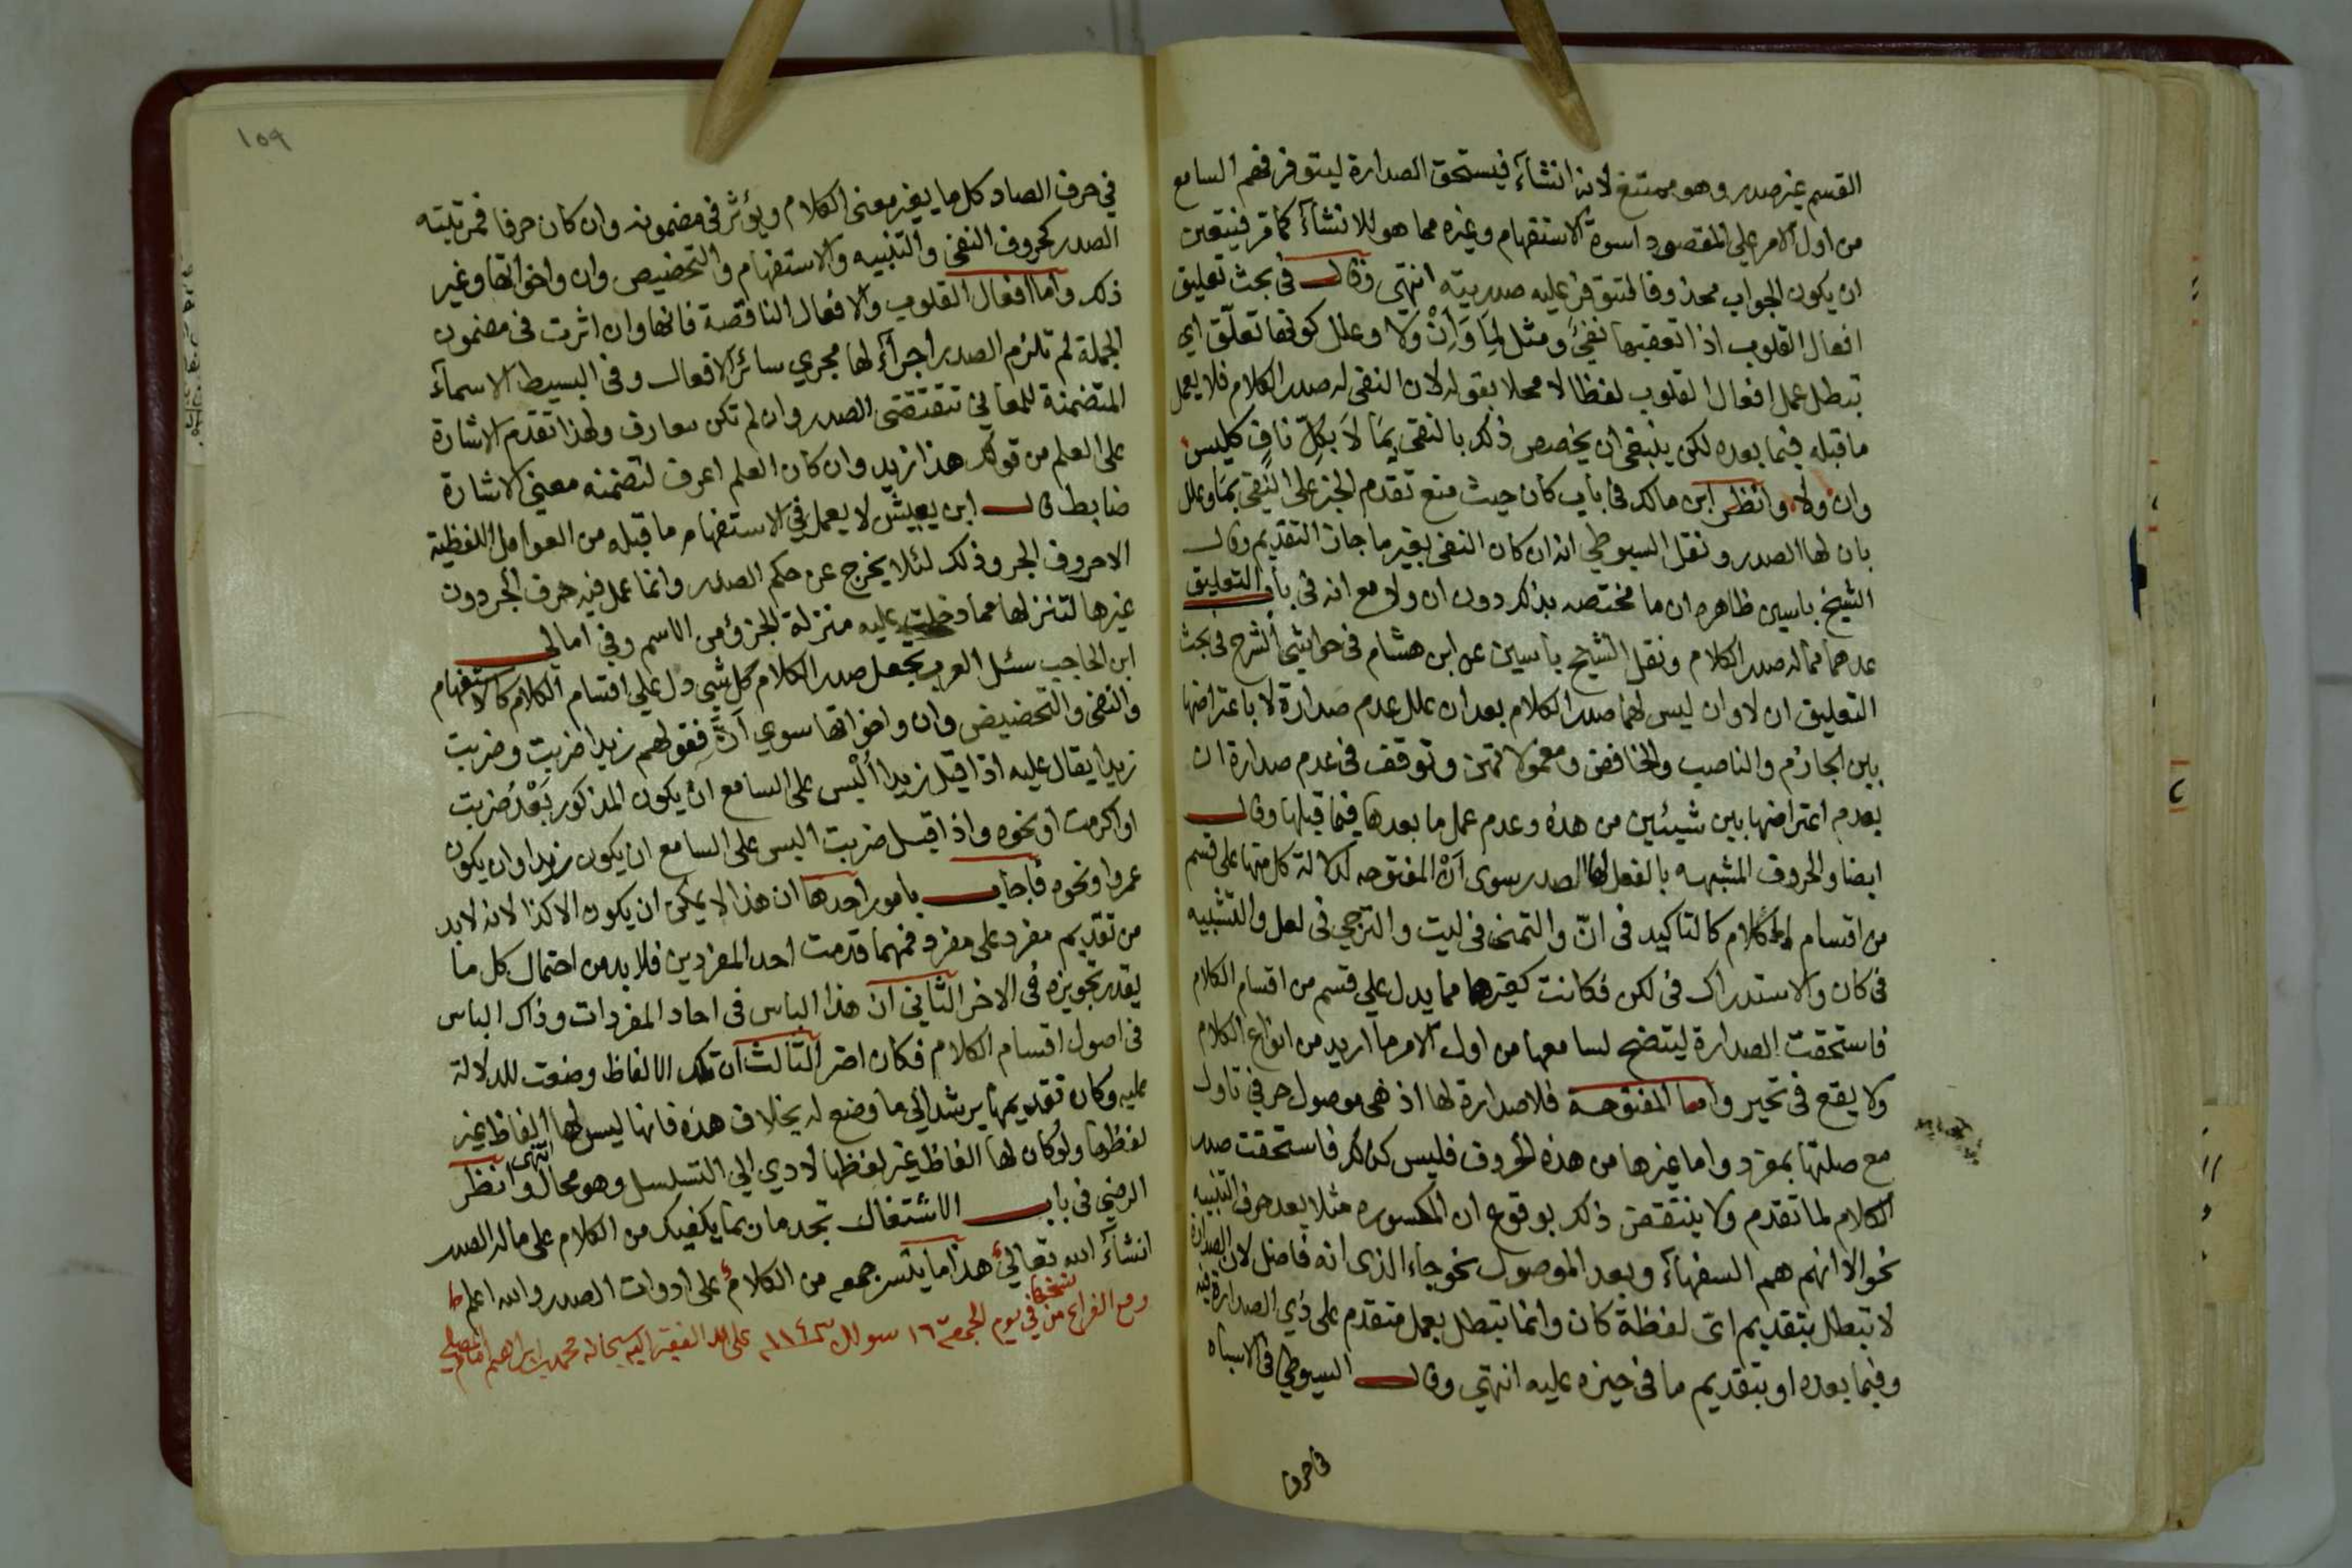 القسم غير صدر وهو ممتنع لانه انشآء فيستحق الصدارة ليتوفر فهم السامع
من اول الامر على المقصود اسوة الاستفهام وغيره مما هو للانشآء كما مر فيتعين
ان يكون الجواب محذوفا لتتوفر عليه صدريته انتهى وقال في بحث تعليق
افعال القلوب اذا تعقبها نفي ومثل لِمَا وَاِنْ ولا وعلل كونها تعلّق اي
تبطل عمل افعال القلوب لفظا لا محلا بقوله لان النفي له صدر الكلام فلا يعمل
ما قبله فيما بعده لكن ينبغي ان يخصص ذلك بالنفي بِمَا لاَ بكلّ نافٍ كليس
وان ولا وانظر ابن مالك في باب كان حيث منع تقدم الخبر على النفي بما وعلل
بان لها الصدر ونقل السيوطي انه ان كان النفي بغير ما جاز التقديم وقال
الشيخ ياسين ظاهره ان ما مختصه بذلك دون ان ولا مع انه في باب التعليق
عدهما مما له صدر الكلام ونقل الشيخ ياسين عن ابن هشام في حواشي الشرح في بحث
التعليق ان لا وان ليس لهما صدر الكلام بعد ان علل عدم صدارة لا باعتراضها
بين الجازم والناصب والخافض ومعمولاتهن وتوقف في عدم صدارة ان
بعدم اعتراضها بين شيئين من هذه وعدم عمل ما بعدها فيما قبلها وقال
ايضا والحروف المشبهه بالفعل لها الصدر سوى أنّ المفتوحه لدلالة كل منها على قسم
من اقسام الكلام كالتاكيد في انّ والتمني في ليت والترجي في لعل والتشبيه
في كان والاستدراك في لكن فكانت كغيرها مما يدل على قسم من اقسام الكلام
فاستحقت الصدارة ليتضح لسامعها من اول الامر ما اريد من انواع الكلام
ولا يقع في تحير واما المفتوحة فلا صدارة لها اذ هي موصول حرفي تاول
مع صلتها بمفرد واما غيرها من هذه الحروف فليس كذلك فاستحقت صدر
الكلام لما تقدم ولا ينتقض ذلك بوقوع ان المكسوره مثلا بعد حرف التنبيه
نحو الا انهم هم السفهآء وبعد الموصول نحو جاء الذى انه فاضل لان الصدارة
لا تبطل بتقديم اىّ لفظة كان وانما تبطل بعمل متقدم على ذي الصدارة فيه
وفيما بعده او بتقديم ما في حيزه عليه انتهى وقال السيوطي في الاشباه
في حرف
١٥٩
في حرف الصاد كل ما يغير معنى الكلام ويؤثر في مضمونه وان كان حرفا فمرتبته
الصدر كحروف النفي والتنبيه والاستفهام والتحضيض وان واخواتها وغير
ذلك واما افعال القلوب والافعال الناقصة فانها وان اثرت في مضمون
الجملة لم تلزم الصدر اجرآء لها مجري سائر الافعال وفي البسيط الاسمآء
المتضمنة للمعاني تتقتضى الصدر وان لم تكن معارف ولهذا تقدم الاشارة
على العلم من قولك هذا زيد وان كان العلم اعرف لتضمنه معنى الاشارة
ضابط قال ابن يعيش لا يعمل في الاستفهام ما قبله من العوامل اللفظية
الا حروف الجر وذلك لئلا يخرج عن حكم الصدر وانما عمل فيه حرف الجر دون
غيرها لتنزلها مما دخلت عليه منزلة الجزؤ من الاسم وفي امالي
ابن الحاجب سئل العرب تجعل صدر الكلام كل شي دل على اقسام الكلام كالاستفهام
والنفي والتحضيض وان واخواتها سوي أنّ فقولهم زيدا ضربت وضربت
زيدا يقال عليه اذا قيل زيدا ألْبس على السامع ان يكون المذكور بَعْدُ ضربت
او اكرمت او نحوه واذا قيل ضربت البس على السامع ان يكون زيدا وان يكون
عمروا ونحوه فاجاب بامور احدها ان هذا لا يمكن ان يكون الا كذا لانه لابد
من تقديم مفرد على مفرد فمهما قدمت احد المفردين فلابد من احتمال كل ما
يقدر تجويزه في الاخر الثاني ان هذا الباس في احاد المفردات وذاك الباس
في اصول اقسام الكلام فكان اضر الثالث ان تلك الالفاظ وضعت للدلالة
عليه وكان تقديمها يرشد الى ما وضع له بخلاف هذه فانها ليس لها الفاظ غير
لفظها ولو كان لها الفاظ غير لفظها لادي الي التسلسل وهو محال انتهى وانظر
الرضي في باب الاشتغال تجد ما ربما يكفيك من الكلام على ماله الصدر
انشآء الله تعالى هذا ما يتسر جمعه من الكلام على ادوات الصدر والله اعلم
وقع الفراغ من نسخها في يوم الجمعة ١٦ شوال ١١٤٣ على يد الفقير اليه سبحانه محمد ابراهيم